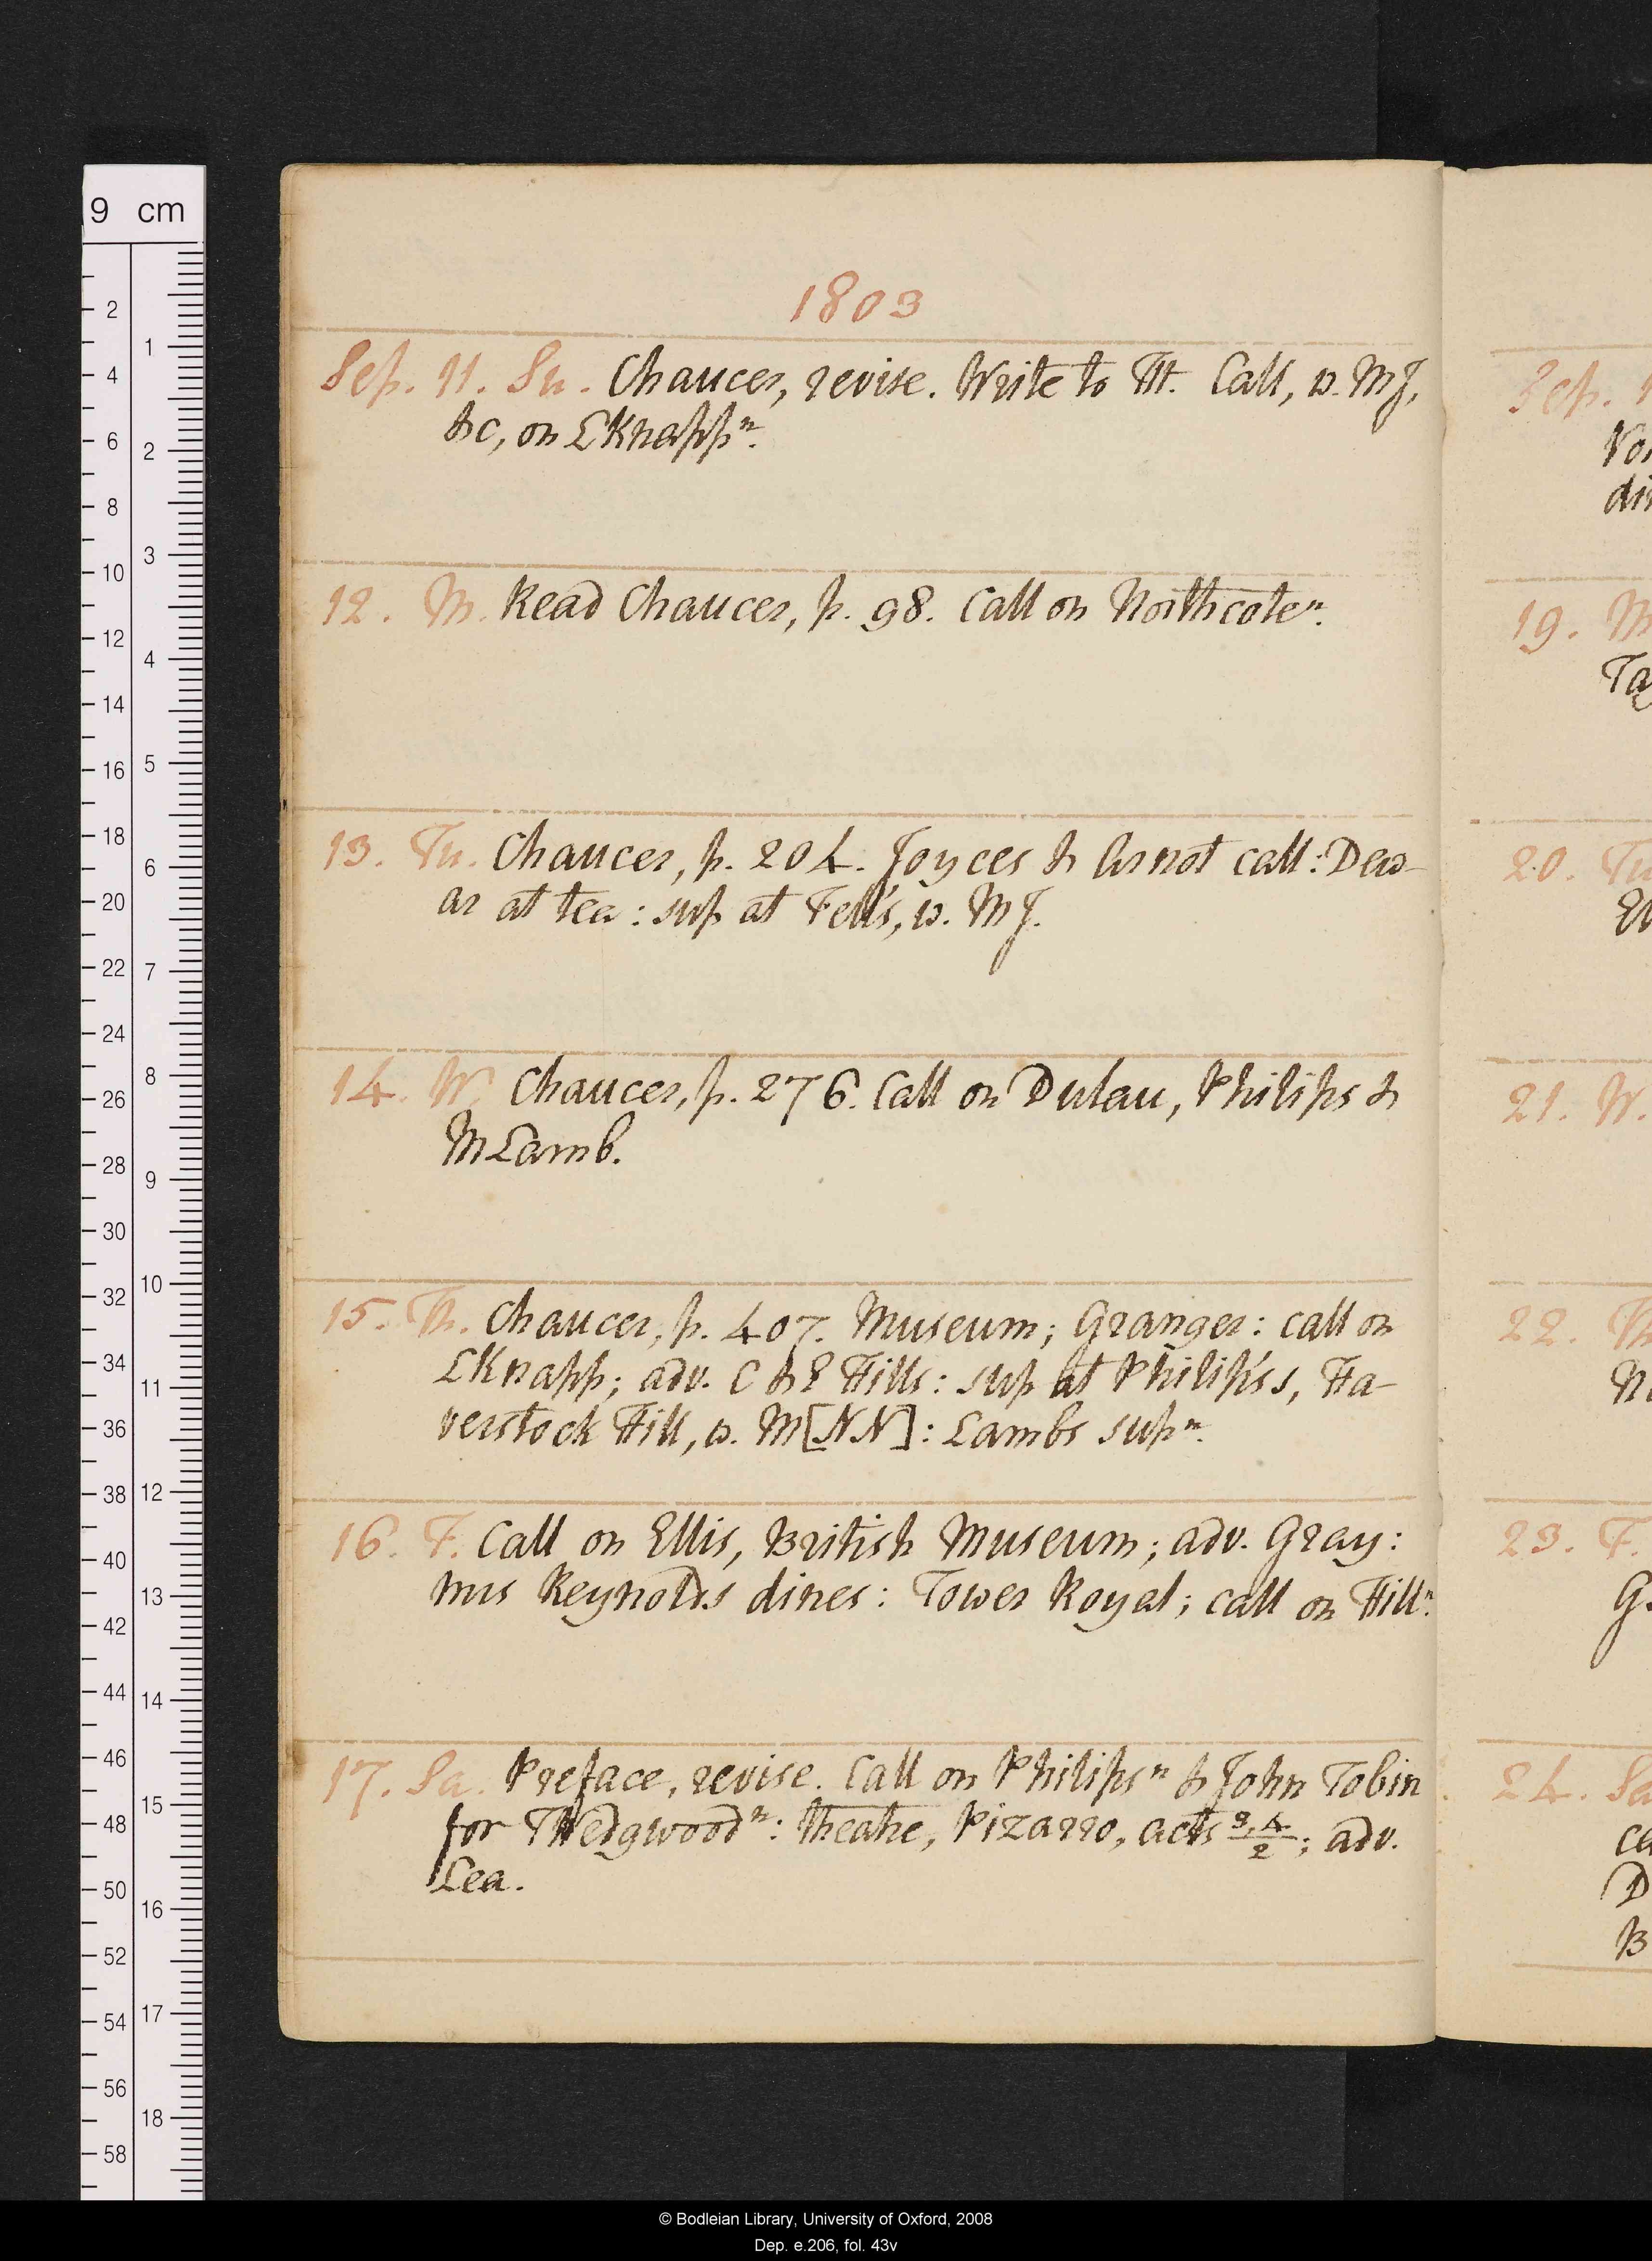 1803
Sep. 11. Su. Chaucer, revise. Write to Th. Call, w. MJ,
&c, on LKnapp n.
12. M. Read Chaucer, p. 98. Call on Northcote n.
13. Tu. Chaucer, p. 204. Joyces & Arnot call: Dew-
ar at tea: sup at Fell's, w. MJ.
14. W. Chaucer, p. 276. Call on Dulau, Philips &
MLamb.
15. Th. Chaucer, p. 407. Museum; Granger: call on
LKnapp; adv. C & E Hills: sup at Philips's, Ha-
verstock Hill, w. M[NN]: Lambs sup n.
16. F. Call on Ellis, British Museum; adv. Gray:
mrs Reynolds dines: Tower Royal; call on Hill n.
17. Sa. Preface, revise. Call on Philips n & John Tobin
for TWedgwood n: theatre, Pizarro, acts 3, 4/2; adv.
Lea.
Sep. 1
19. M
Ta
20. Tu
21. W.
22. Th
23. F.
24. Sa
ca
D
B
9 cm
2
4
6
8
10
12
14
16
18
20
22
24
26
28
30
32
34
36
38
40
42
44
46
48
50
52
54
56
58
1
2
3
4
5
6
7
8
9
10
11
12
13
14
15
16
17
18
© Bodleian Library, University of Oxford, 2008
Dep. e.206, fol. 43v